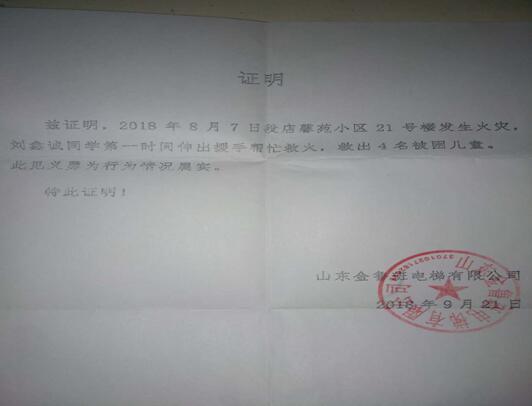 证明
兹证明，2018年8月7日段店馨苑小区21号楼发生火灾，
刘鑫诚同学第一时间伸出援手帮忙救火，救出4名被困儿童。
此见义勇为行为情况属实。
特此证明！
山东金鲁班电梯有限公司
2018年9月21日